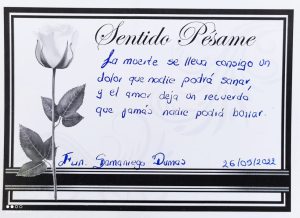 Sentido Pésame
La muerte se lleva consigo un
dolor que nadie podrá sanar,
y el amor deja un recuerdo
que jamás nadie podrá borrar.
Fam. Samaniego Dumas
26/09/2022